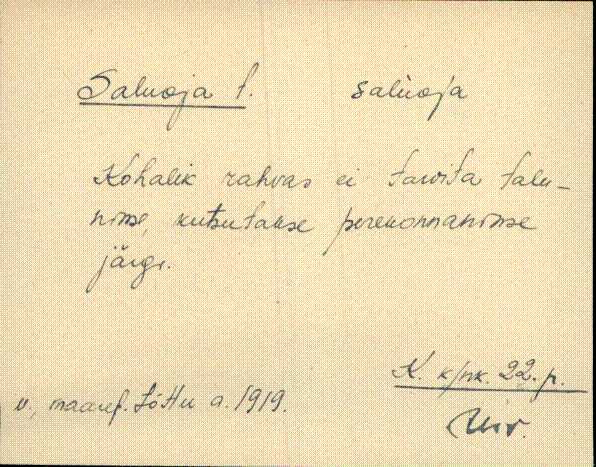 Saluoja t. saluoja
Kohalik rahvas ei tarvita talu-
nime, kutsutakse perekonnanime
järgi.
K. k/nk. 22. p.
v., maaref. tõttu a. 1919.